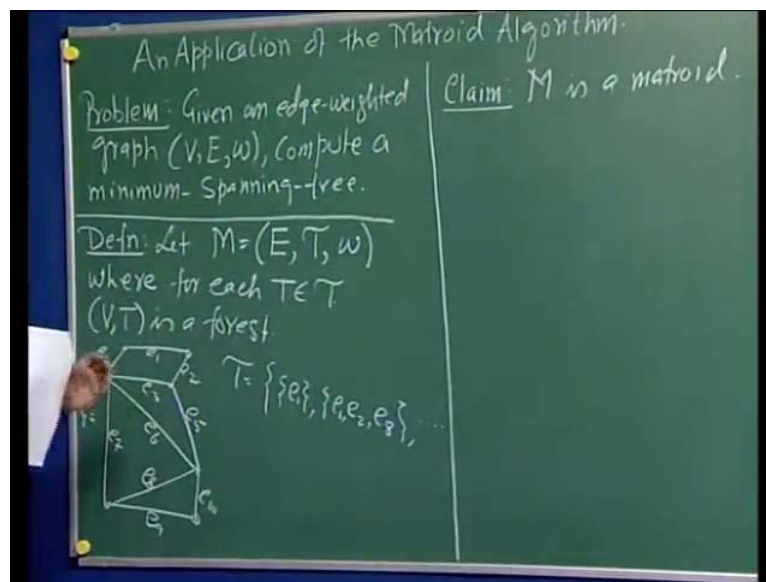 An Application of the Matroid Algorithm.
Problem: Given an edge-weighted
graph (V, E, w), Compute a
minimum-Spanning-tree.
Defn: Let M = (E, T, w)
where for each T ∈ T
(V, T) is a forest.
e1
e2
e3
e5
e6
e7
e8
e9
T = {{e1}, {e1, e2, e8}, ...
Claim: M is a matroid.